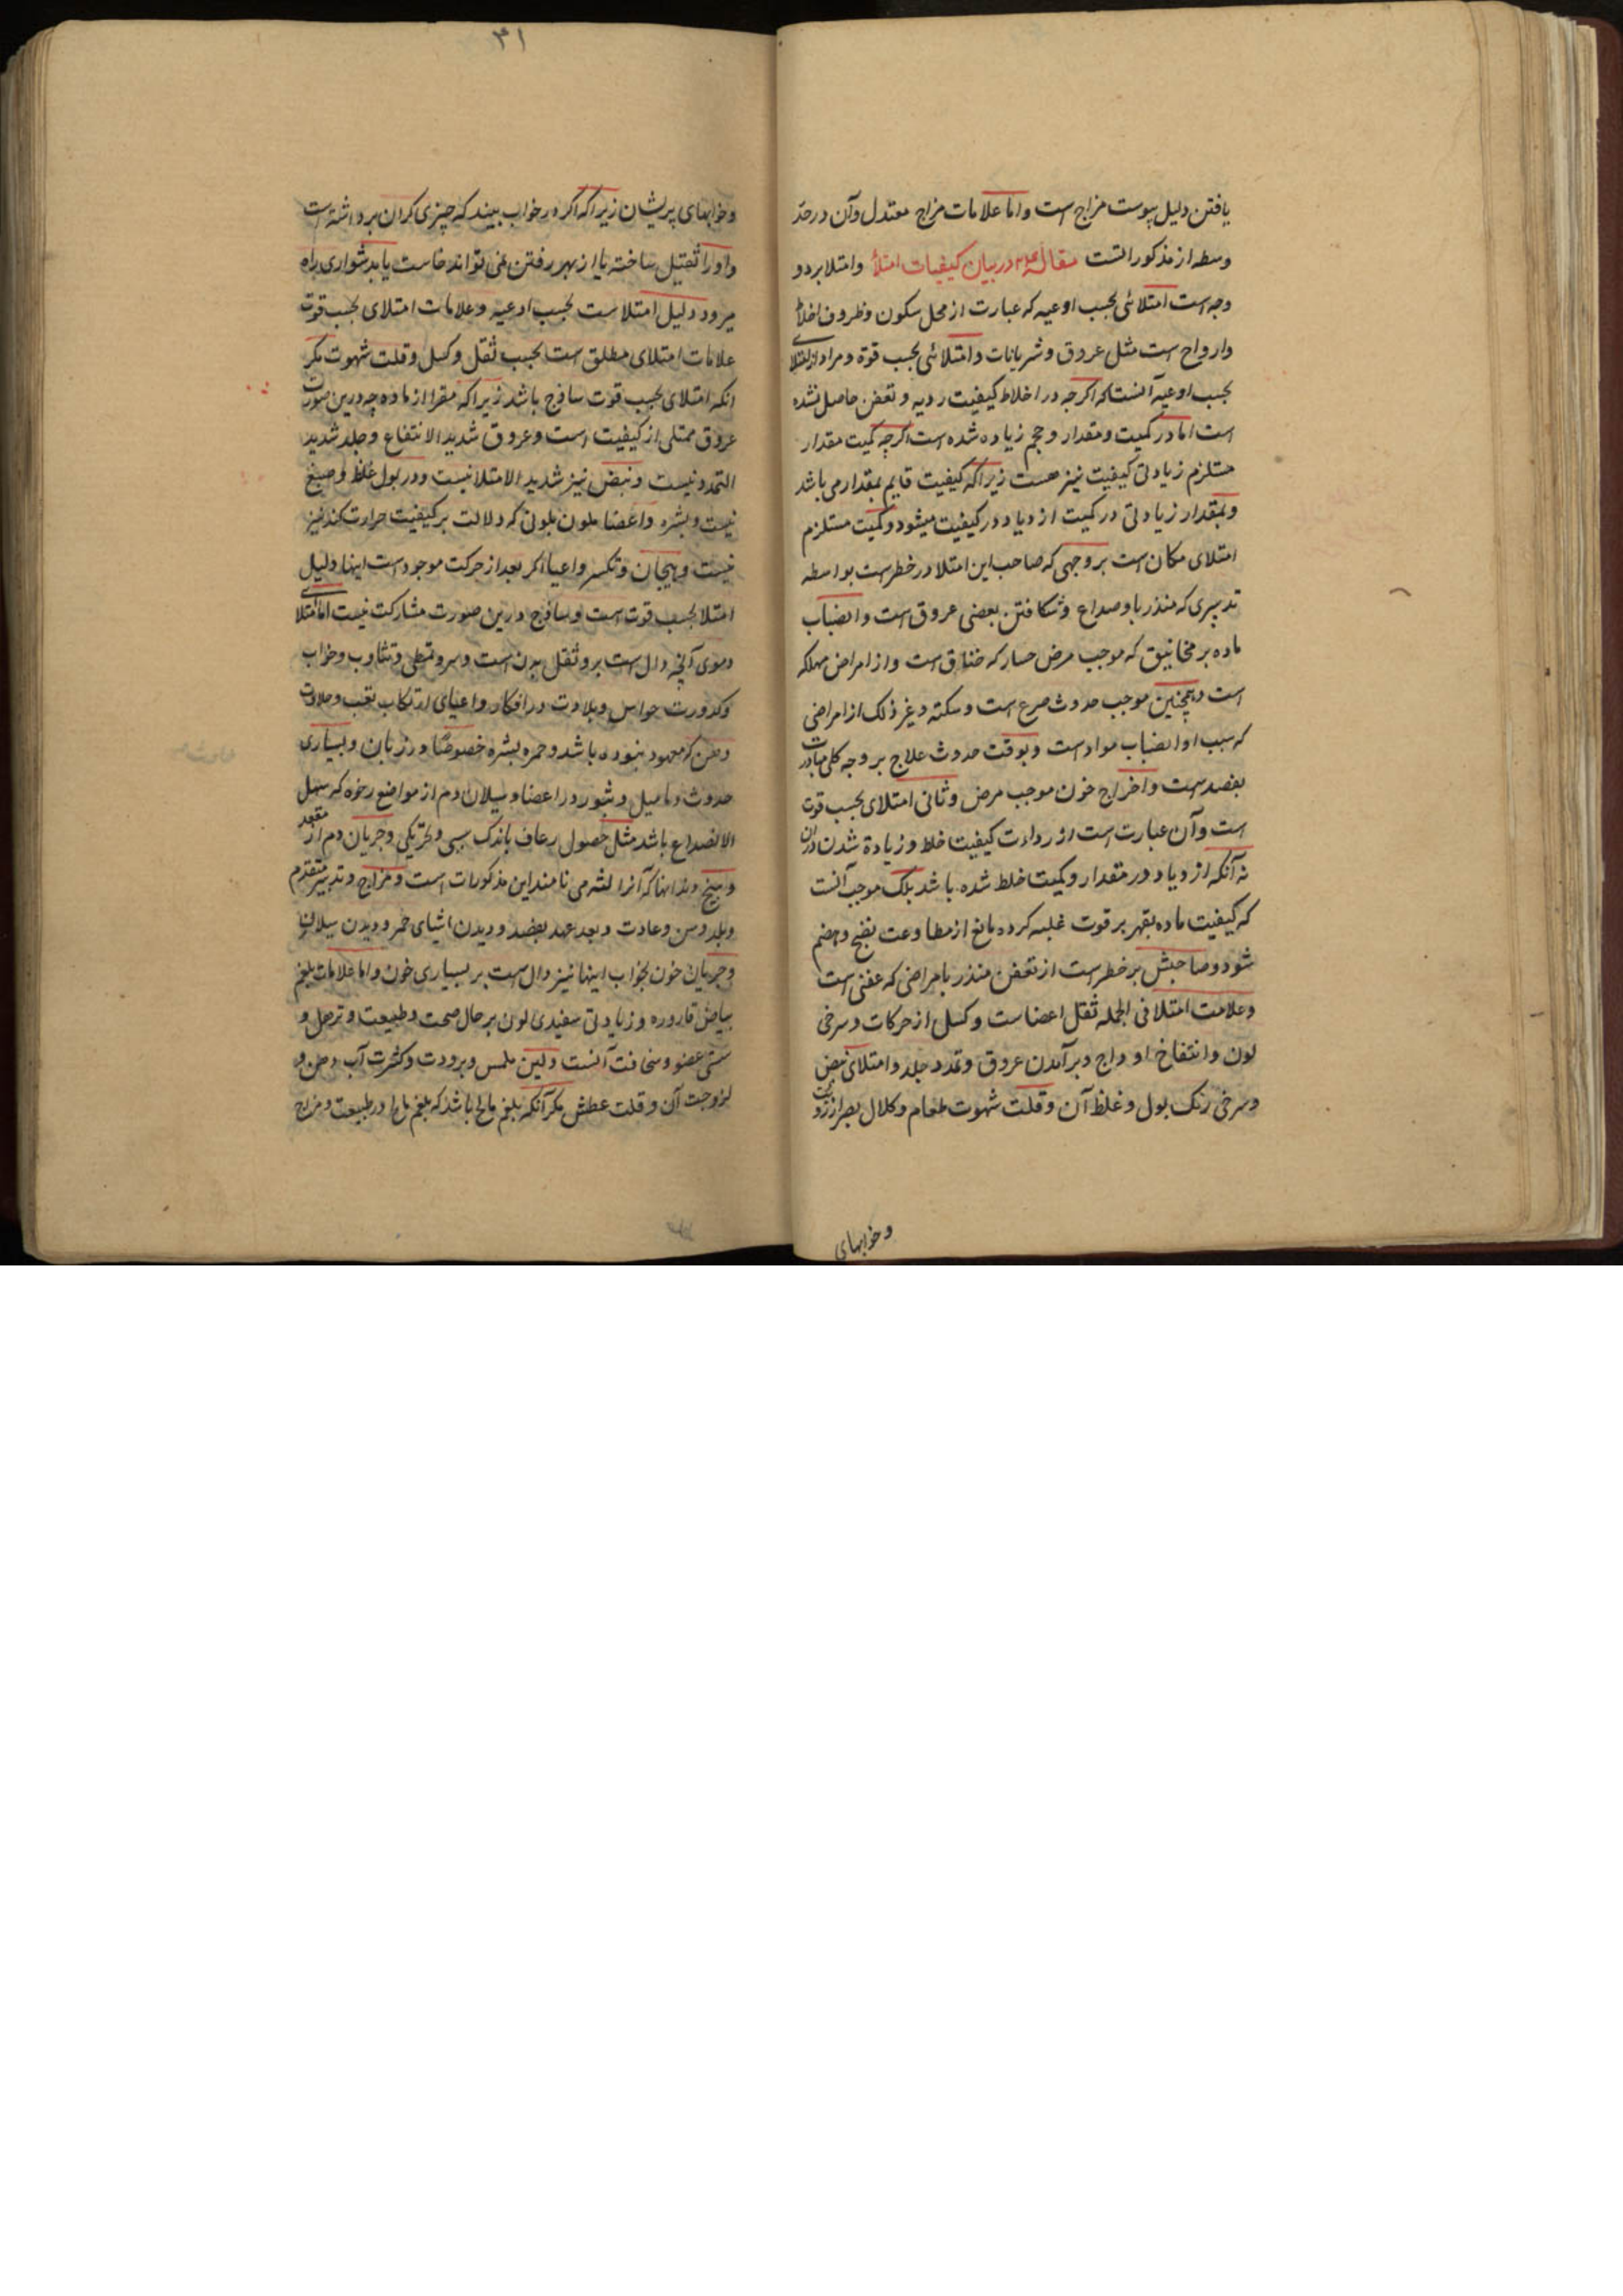 یافتن دلیل یبوست مزاج است و اما علامات مزاج معتدل و آن در حد
وسط از مذکور است مقاله در بیان کیفیات امتلا و امتلا بر دو
وجه است امتلائی بحسب اوعیه که عبارت از محل سکون و ظروف اخلاط
و ارواح است مثل عروق و شریانات و امتلائی بحسب قوة و مراد از امتلای
بحسب اوعیه آنست که اکرچه در اخلاط کیفیت ردیه و تعفن حاصل نشده
است اما در کمیت و مقدار و حجم زیاده شده است اکرچه کمیت مقدار
مستلزم زیادتی کیفیت نیز هست زیرا که کیفیت قایم بمقدار می باشد
و بمقدار زیادتی در کمیت ازدیاد در کیفیت میشود و کمیت مستلزم
امتلای مکان است بر وجهی که صاحب این امتلا در خطر است بواسطه
تدبیری که منذر باو صداع و شکافتن بعضی عروق است و انصباب
ماده بر مخانیق که موجب مرض حسار که خناق است و از امراض مهلکه
است و همچنین موجب حدوث صرع است و سکته و غیر ذلک از امراضی
که سبب او انصباب مواد است و بوقت حدوث علاج بر وجه کلی مبادرت
بفصد است و اخراج خون موجب مرض و ثانی امتلای بحسب قوت
است و آن عبارت است از رداءت کیفیت خلط و زیادة شدن در آن
نه آنکه ازدیاد در مقدار و کمیت خلط شده باشد بلک موجب آنست
که کیفیت ماده بقهر بر قوت غلبه کرده مانع از مطاوعت نضج و هضم
شود و صاحبش بر خطر است از تعفن منذر بامراضی که عفنی است
و علامت امتلا فی الجمله ثقل اعضاست و کسل از حرکات و سرخی
لون و انتفاخ اوداج و برآمدن عروق و تمدد جلد و امتلای نبض
و سرخی رنک بول و غلظ آن و قلت شهوت طعام و کلال بصر از
و خوابهای
۳۱
و خوابهای پریشان زیرا که اکر در خواب بیند که چیزی کران برداشته است
و او را ثقیل ساخته یا از بهر رفتن نمی تواند خاست یا بدشواری راه
میرود دلیل امتلاست بحسب اوعیه و علامات امتلای بحسب قوت
علامات امتلای مطلق است بحسب ثقل و کسل و قلت شهوت مکر
انکه امتلای بحسب قوت ساذج باشد زیرا که مقرا از ماده چه درین صورت
عروق ممتلی از کیفیت است و عروق شدید الانتفاع و جلد شدید
التمدد نیست و نبض نیز شدید الامتلا نیست و در بول غلظ و صبغ
نیست و بشره و اعضا ملون بلونی که دلالت بر کیفیت حرارت کند نیز
نیست و هیجان و تکسر و اعیا اکر بعد از حرکت موجود است اینها دلیل
امتلا بحسب قوت است و ساذج درین صورت مشارکت نیست اما امتلای
دموی آنچه دال است برو ثقل بدن است و سر و تمطی و تثاوب و خواب
و کدورت حواس و بلادت در افکار و اعیای ارتکاب تعب و حلاوت
دهن که معهود نبوده باشد و حمره بشره خصوصا در زبان و بسیاری
حدوث دمامیل و بثور در اعضا و سیلان دم از مواضع رخوه که سهل
الانصداع باشد مثل حصول رعاف باندک سببی و تحریکی و جریان دم از مقعد
و بیخ دندانها که آنرا لثه می نامند این مذکورات است و مزاج و تدبیر متقدم
و بلد و سن و عادت و بعد عهد بفصد و دیدن اشیای حمر و دیدن سیلان
و جریان خون بخواب اینها نیز دال است بر بسیاری خون و اما علامات بلغم
بیاض قاروره و زیادتی سفیدی لون بر حال صحت و طبیعت و ترهل و
سستی عضو و سخافت آنست و لین ملمس و برودت و کثرت آب دهن و
لزوجت آن و قلت عطش مکر آنکه بلغم مالح باشد که بلغم مالح در طبیعت و مزاج